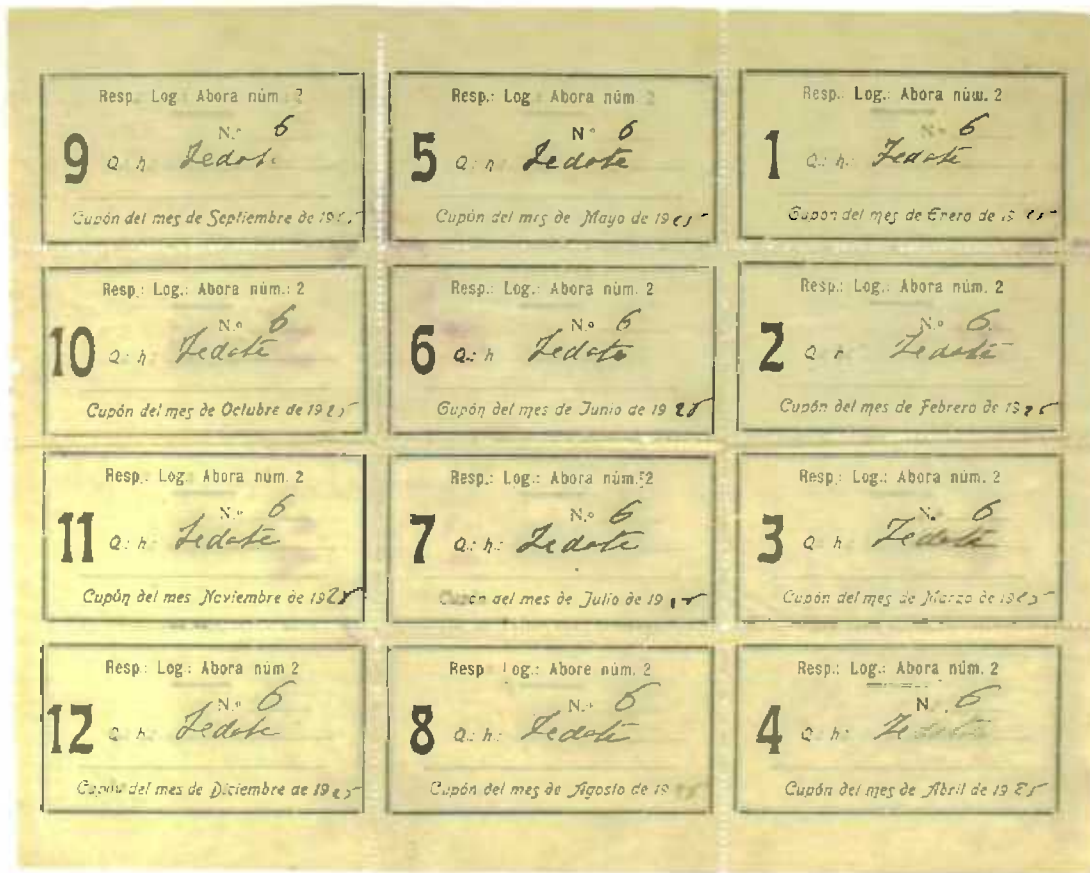 Resp.: Log.: Abora núm. 2
N.º 6
9 Q.: h.: Zedote
Cupón del mes de Septiembre de 1925
Resp.: Log.: Abora núm. 2
N.º 6
5 Q.: h.: Zedote
Cupón del mes de Mayo de 1925
Resp.: Log.: Abora núm. 2
N.º 6
1 Q.: h.: Zedote
Cupón del mes de Enero de 1925
Resp.: Log.: Abora núm.: 2
N.º 6
10 Q.: h.: Zedote
Cupón del mes de Octubre de 1925
Resp.: Log.: Abora núm. 2
N.º 6
6 Q.: h.: Zedote
Cupón del mes de Junio de 1925
Resp.: Log.: Abora núm. 2
N.º 6
2 Q.: h.: Zedote
Cupón del mes de Febrero de 1925
Resp.: Log.: Abora núm. 2
N.º 6
11 Q.: h.: Zedote
Cupón del mes Noviembre de 1925
Resp.: Log.: Abora núm. 2
N.º 6
7 Q.: h.: Zedote
Cupón del mes de Julio de 1925
Resp.: Log.: Abora núm. 2
N.º 6
3 Q.: h.: Zedote
Cupón del mes de Marzo de 1925
Resp.: Log.: Abora núm 2
N.º 6
12 Q.: h.: Zedote
Cupón del mes de Diciembre de 1925
Resp.: Log.: Abore núm. 2
N.º 6
8 Q.: h.: Zedote
Cupón del mes de Agosto de 1925
Resp.: Log.: Abora núm. 2
N.º 6
4 Q.: h.: Zedote
Cupón del mes de Abril de 1925